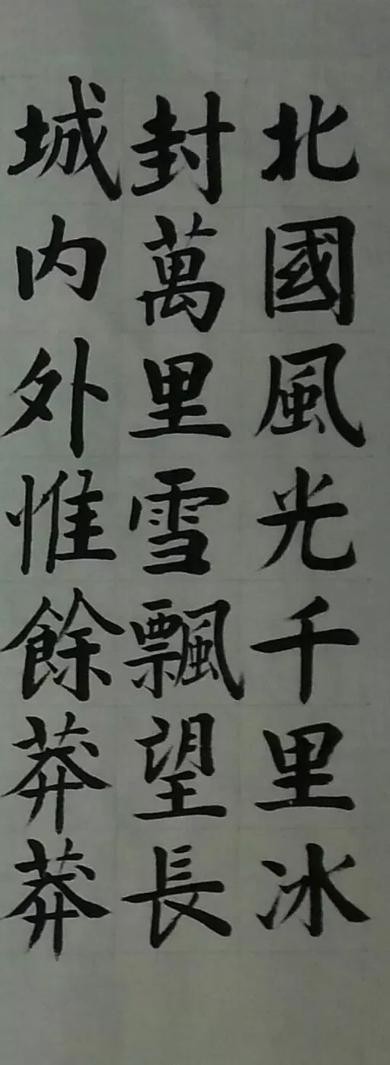 北國風光千里冰
封萬里雪飄望長
城内外惟餘莽莽